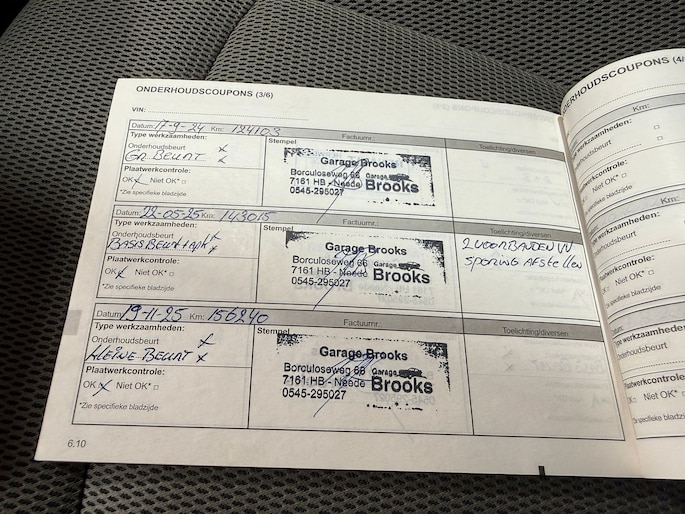 ONDERHOUDSCOUPONS (3/6)
VIN:
Datum: 17-9-24 Km: 124103 Factuurnr.:
Type werkzaamheden: Stempel Toelichting/diversen
Onderhoudsbeurt x
GR. BEURT x
Plaatwerkcontrole:
OK x Niet OK* □
*Zie specifieke bladzijde
Garage Brooks
Borculoseweg 66
7161 HB - Neede
0545-295027
Garage
Brooks
Datum: 22-05-25 Km: 143015 Factuurnr.:
Type werkzaamheden: Stempel Toelichting/diversen
Onderhoudsbeurt x
BASIS BEURT + APK x
Plaatwerkcontrole:
OK x Niet OK* □
*Zie specifieke bladzijde
Garage Brooks
Borculoseweg 66
7161 HB - Neede
0545-295027
Garage
Brooks
2 VOORBANDEN VV
SPORING AFSTELLEN
Datum: 19-11-25 Km: 156240 Factuurnr.:
Type werkzaamheden: Stempel Toelichting/diversen
Onderhoudsbeurt x
KLEINE BEURT x
Plaatwerkcontrole:
OK x Niet OK* □
*Zie specifieke bladzijde
Garage Brooks
Borculoseweg 66
7161 HB - Neede
0545-295027
Garage
Brooks
6.10
DERHOUDSCOUPONS (4/
Km:
werkzaamheden:
Niet OK*
specifieke bladzijde
Km:
werkzaamheden:
oudsbeurt
werkcontrole:
Niet OK*
specifieke bladzijde
werkzaamheden:
nderhoudsbeurt
laatwerkcontrole:
OK □ Niet OK*
Zie specifieke bladzijde